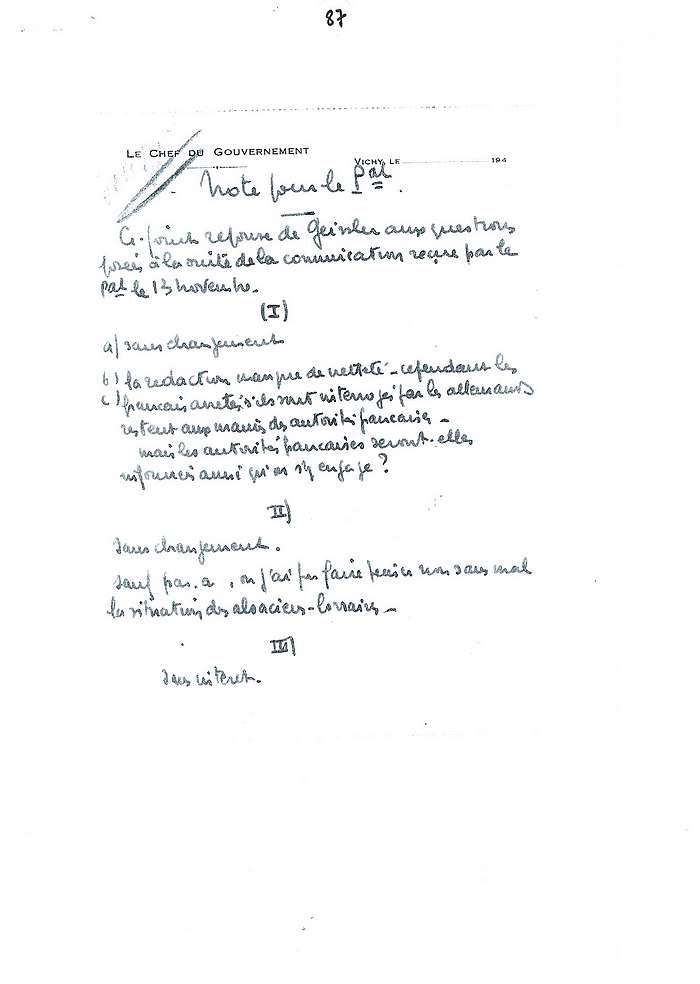 87
LE CHEF DU GOUVERNEMENT
VICHY, LE 194
Note pour le Pal.
Ci-joint reponse de Geissler aux questions
posées à la suite de la communication reçue par le
Pal le 13 novembre.
(I)
a) sans changement
b) la redaction manque de netteté - cependant les
c) francais arretés s'ils sont interrogés par les allemands
restent aux mains des autorités francaises -
mais les autorités francaises seront-elles
informées aussi qu'on s'y engage ?
II)
sans changement.
sauf par. a, où j'ai pu faire non sans mal
la situation des alsaciens-lorrains -
III)
sans interet.